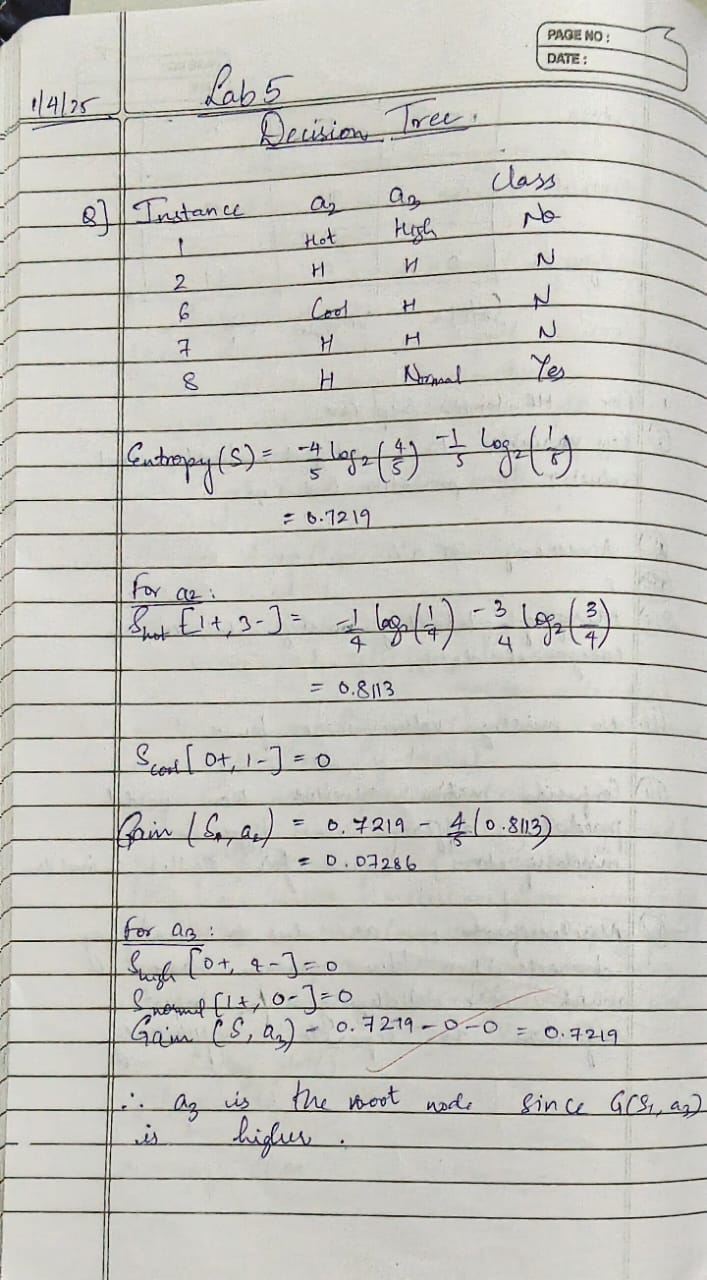 PAGE NO :
DATE :
1/4/25
Lab 5
Decision Tree.
Q] Instance a2 a3 Class
1 Hot High No
2 H H N
6 Cool H N
7 H H N
8 H Normal Yes
Entropy(S) = -4/5 log2(4/5) -1/5 log2(1/5)
= 0.7219
For a2 :
Shot [1+, 3-] = -1/4 log2(1/4) -3/4 log2(3/4)
= 0.8113
Scool [0+, 1-] = 0
Gain (S, a2) = 0.7219 - 4/5 (0.8113)
= 0.07286
For a3 :
Shigh [0+, 4-] = 0
Snormal [1+, 0-] = 0
Gain (S, a3) - 0.7219 - 0 - 0 = 0.7219
∴ a3 is the root node since G(S1, a3)
is higher.